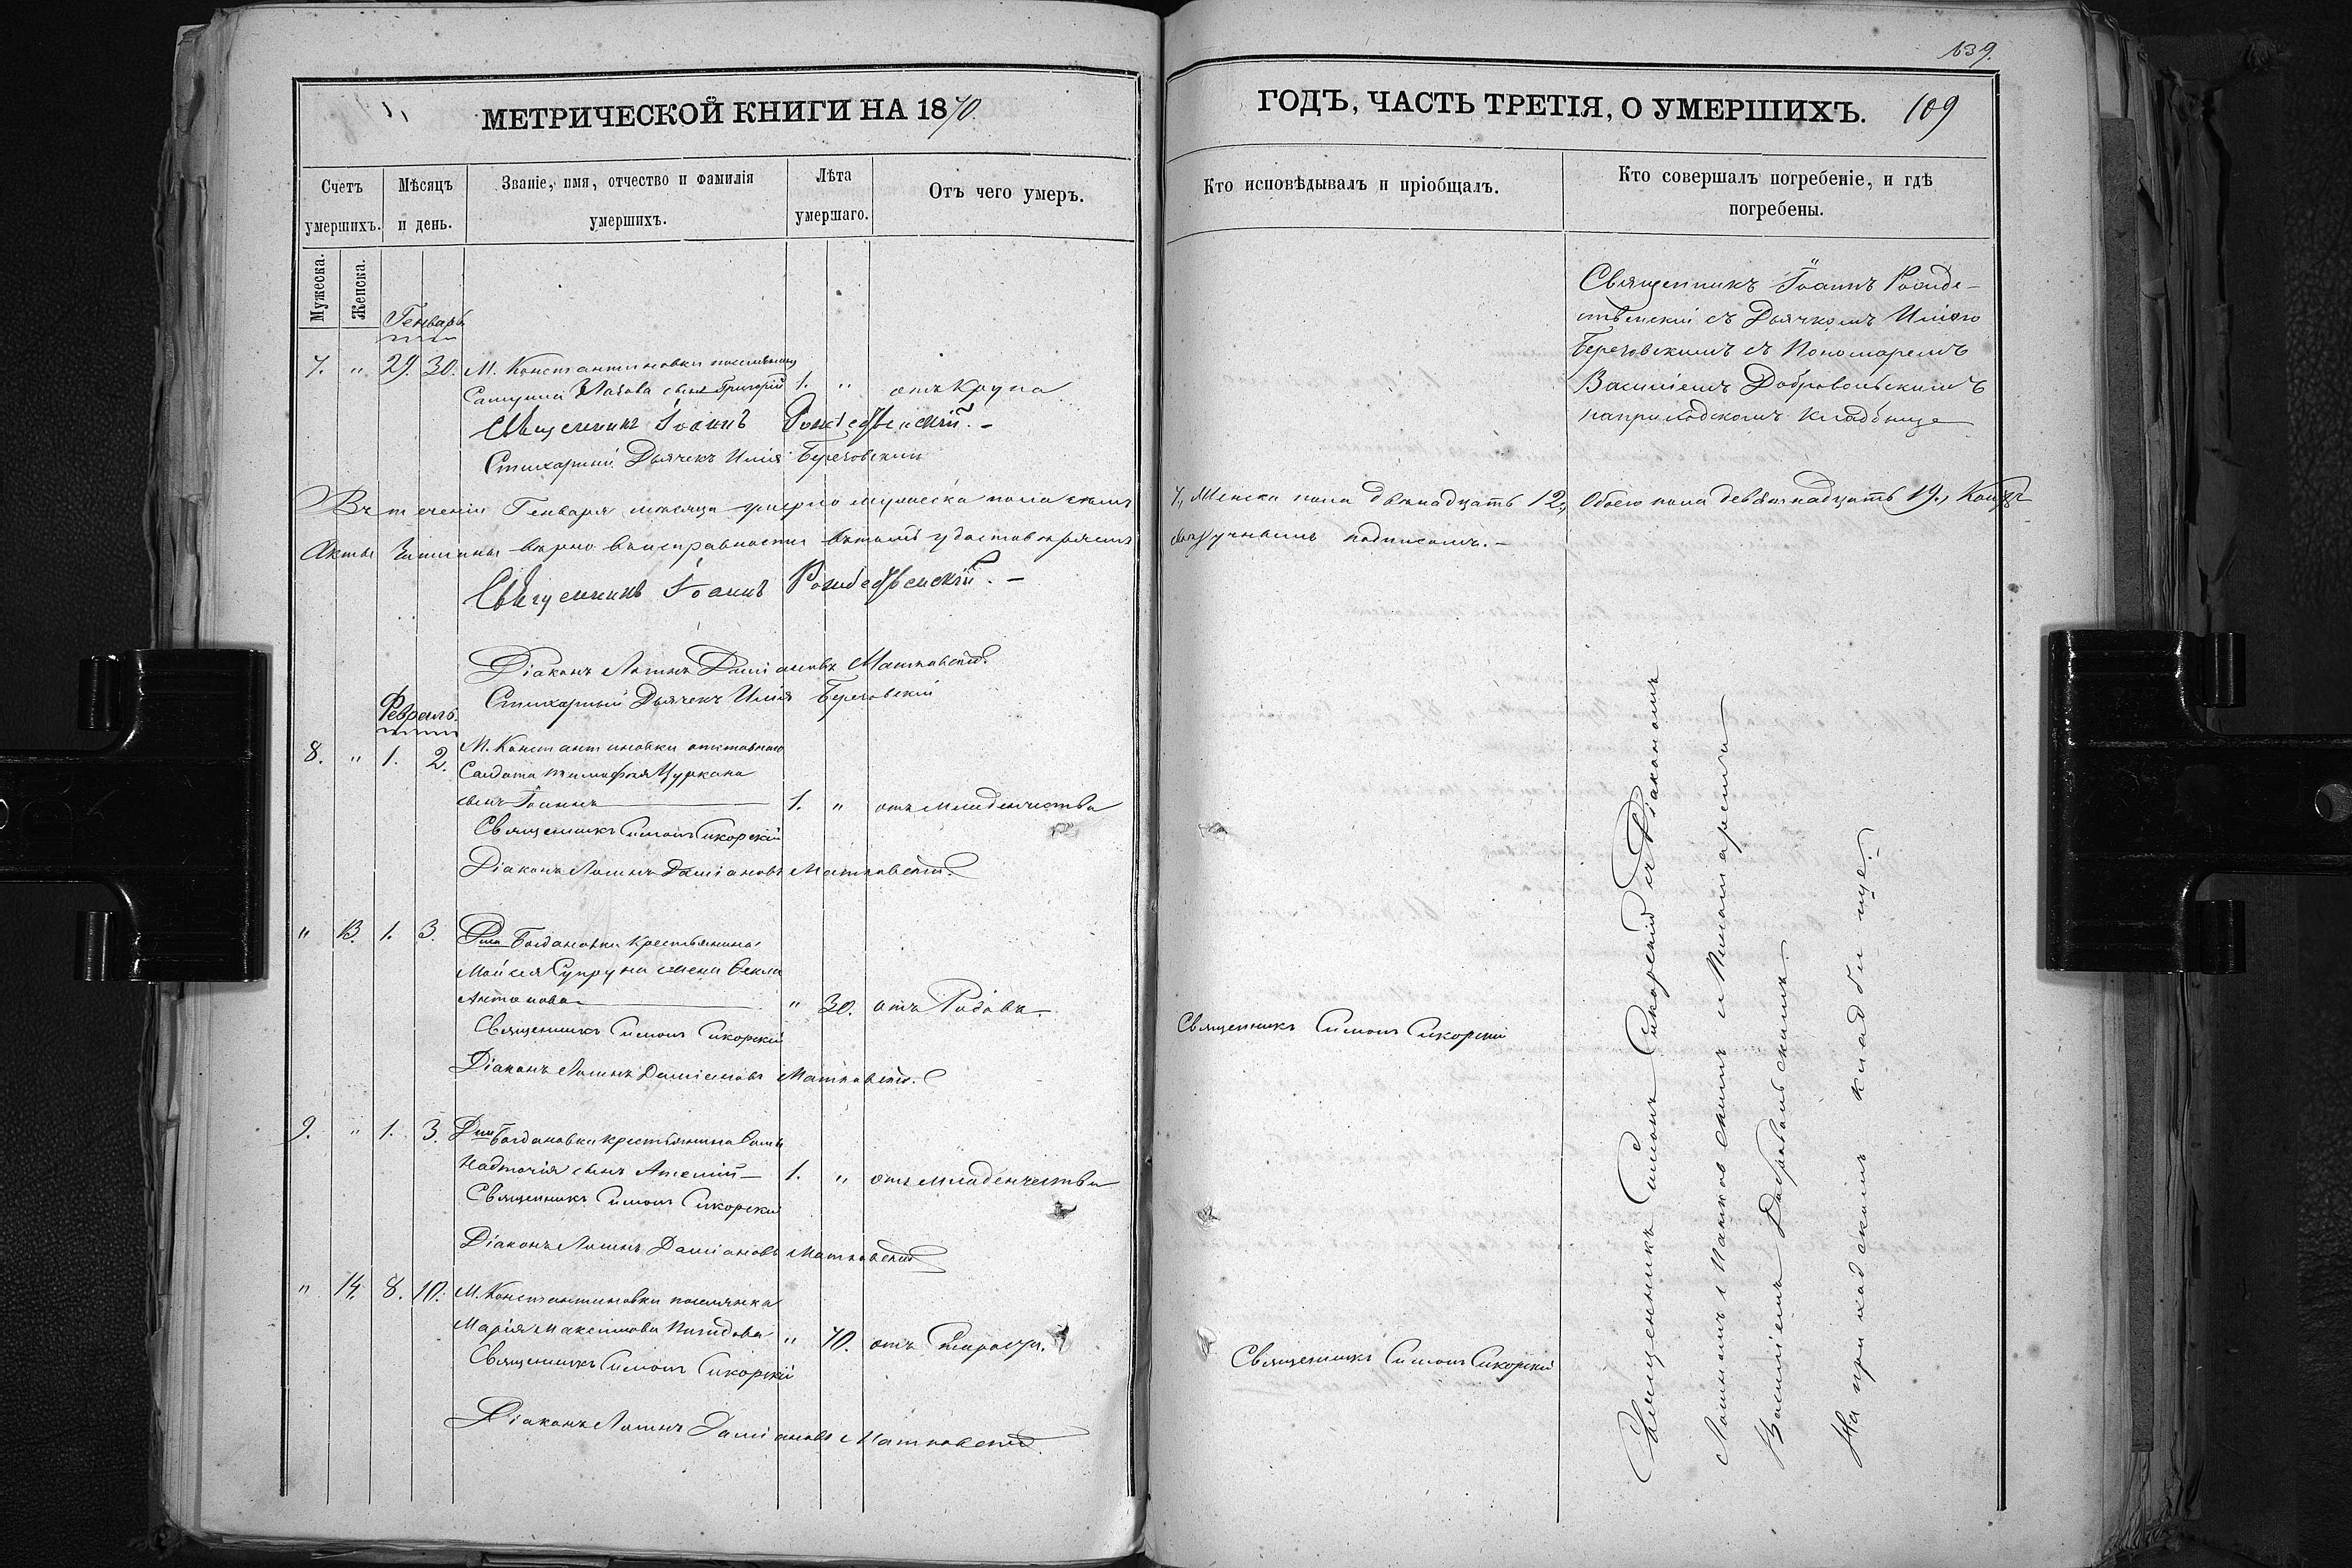 139.
МЕТРИЧЕСКОЙ КНИГИ НА 1870.
ГОДЪ, ЧАСТЬ ТРЕТІЯ, О УМЕРШИХЪ. 109
Счетъ умершихъ.
Мѣсяцъ и день.
Званіе, имя, отчество и фамилія умершихъ.
Лѣта умершаго.
Отъ чего умеръ.
Кто исповѣдывалъ и пріобщалъ.
Кто совершалъ погребеніе, и гдѣ погребены.
Мужеска.
Женска.
Генварь
7. " 29. 30. М. Константиновки
сынъ Григорій 1. " отъ Крупа
Священникъ Іоаннъ Рождественскій.
Стихарный Дьячекъ Илія Березовскій
Священникъ Іоаннъ Рожде-
ственскій съ Дьячкомъ Иліею
Березовскимъ съ Пономаремъ
Василіемъ Добровольскимъ
на приходскомъ кладбище
Въ теченіи Генваря месяца умерло мужеска пола семь
7., Женска пола двенадцать 12., Обоего пола девятнадцать 19.,
Акты записаны верно въ исправности въ томъ удостоверяемъ
своеручнымъ подписомъ. –
Священникъ Іоаннъ Рождественскій. –
Діаконъ Логинъ Даміановъ Матковскій.
Стихарный Дьячекъ Илія Березовскій
Февраль.
8. " 1. 2. М. Константиновки отставного
Солдата Тимофея Цуркана
сынъ Іоаннъ 1. " отъ младенчества
Священникъ Симонъ Сикорскій
Діаконъ Логинъ Даміановъ Матковскій.
" 13. 1. 3. Д Богдановки крестьянина
Мойсея Супруна жена Фекла
Антонова " 30. отъ Родовъ.
Священникъ Симонъ Сикорскій
Діаконъ Логинъ Даміановъ Матковскій.
Священникъ Симонъ Сикорскій
9. " 1. 3. Д Богдановки крестьянина
Надточія сынъ 1. " отъ младенчества
Священникъ Симонъ Сикорскій
Діаконъ Логинъ Даміановъ Матковскій
" 14. 8. 10. М. Константиновки поселянка
Марія Максимова " 70. отъ Старости.
Священникъ Симонъ Сикорскій
Діаконъ Логинъ Даміановъ Матковскій.
Священникъ Симонъ Сикорскій
Священникъ Симонъ Сикорскій съ Діакономъ
Логиномъ Матковскимъ и Пономаремъ
Василіемъ Добровольскимъ.
На приходскомъ кладбище.